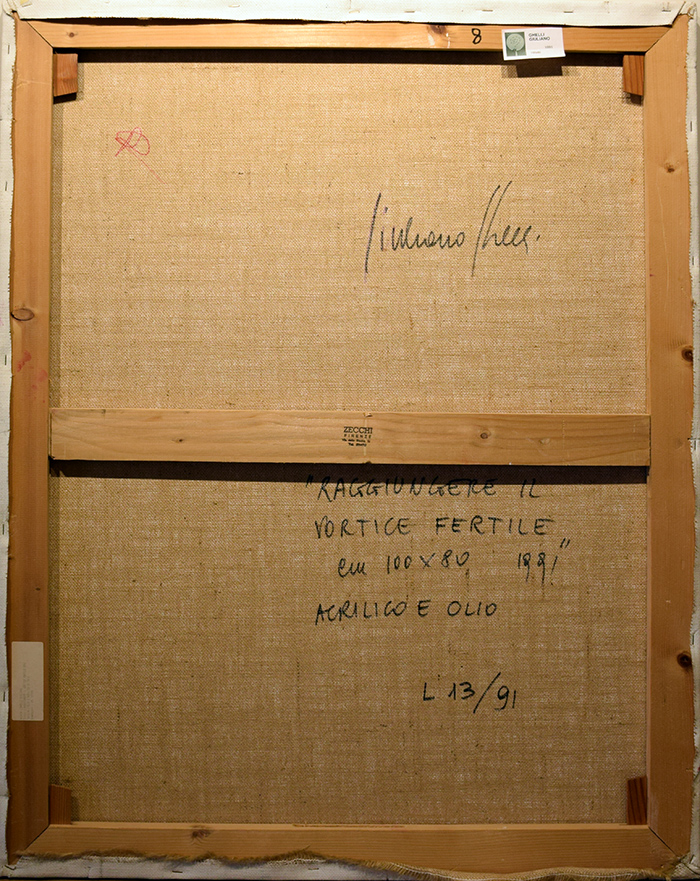 8
GHELLI
GIULIANO
Giuliano Ghelli.
ZECCHI
FIRENZE
"RAGGIUNGERE IL
VORTICE FERTILE
cm 100x80 1991"
ACRILICO E OLIO
L 13/91